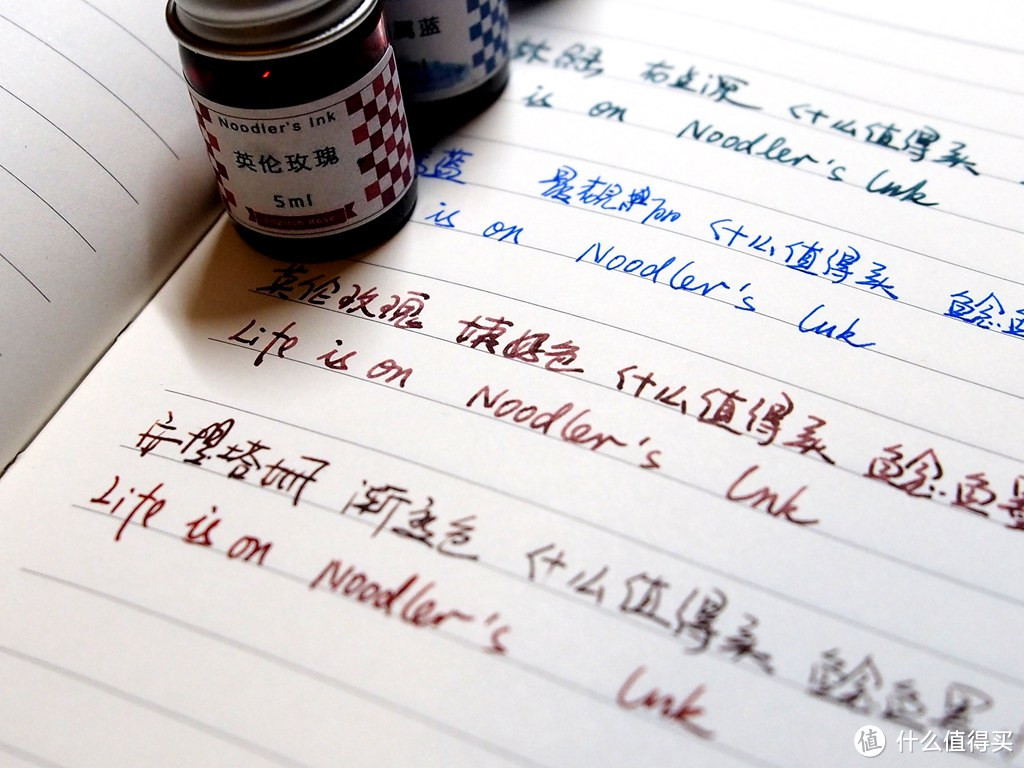 Noodler's Ink
英伦玫瑰
5ml
English Rose
属蓝
什么值得买
is on Noodler's Ink
蓝 什么值得买 鲶鱼
is on Noodler's Ink
英伦玫瑰 姨妈色 什么值得买 鲶鱼墨
Life is on Noodler's Ink
安提塔姆 渐变色 什么值得买 鲶鱼墨
Life is on Noodler's Ink
值 什么值得买